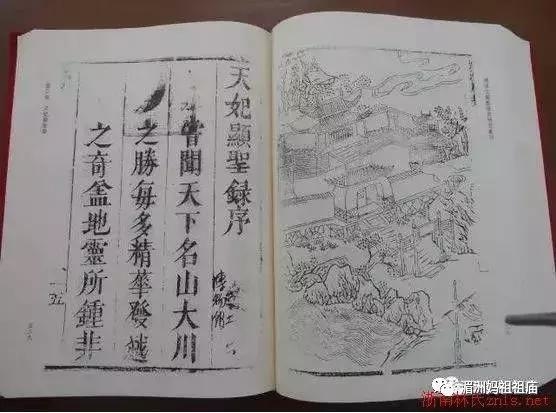 天妃顯聖錄序
嘗聞天下名山大川
之勝每多精華發越
之奇盖地靈所鍾非
一五
湄洲妈祖祖庙
浙南林氏znls.net